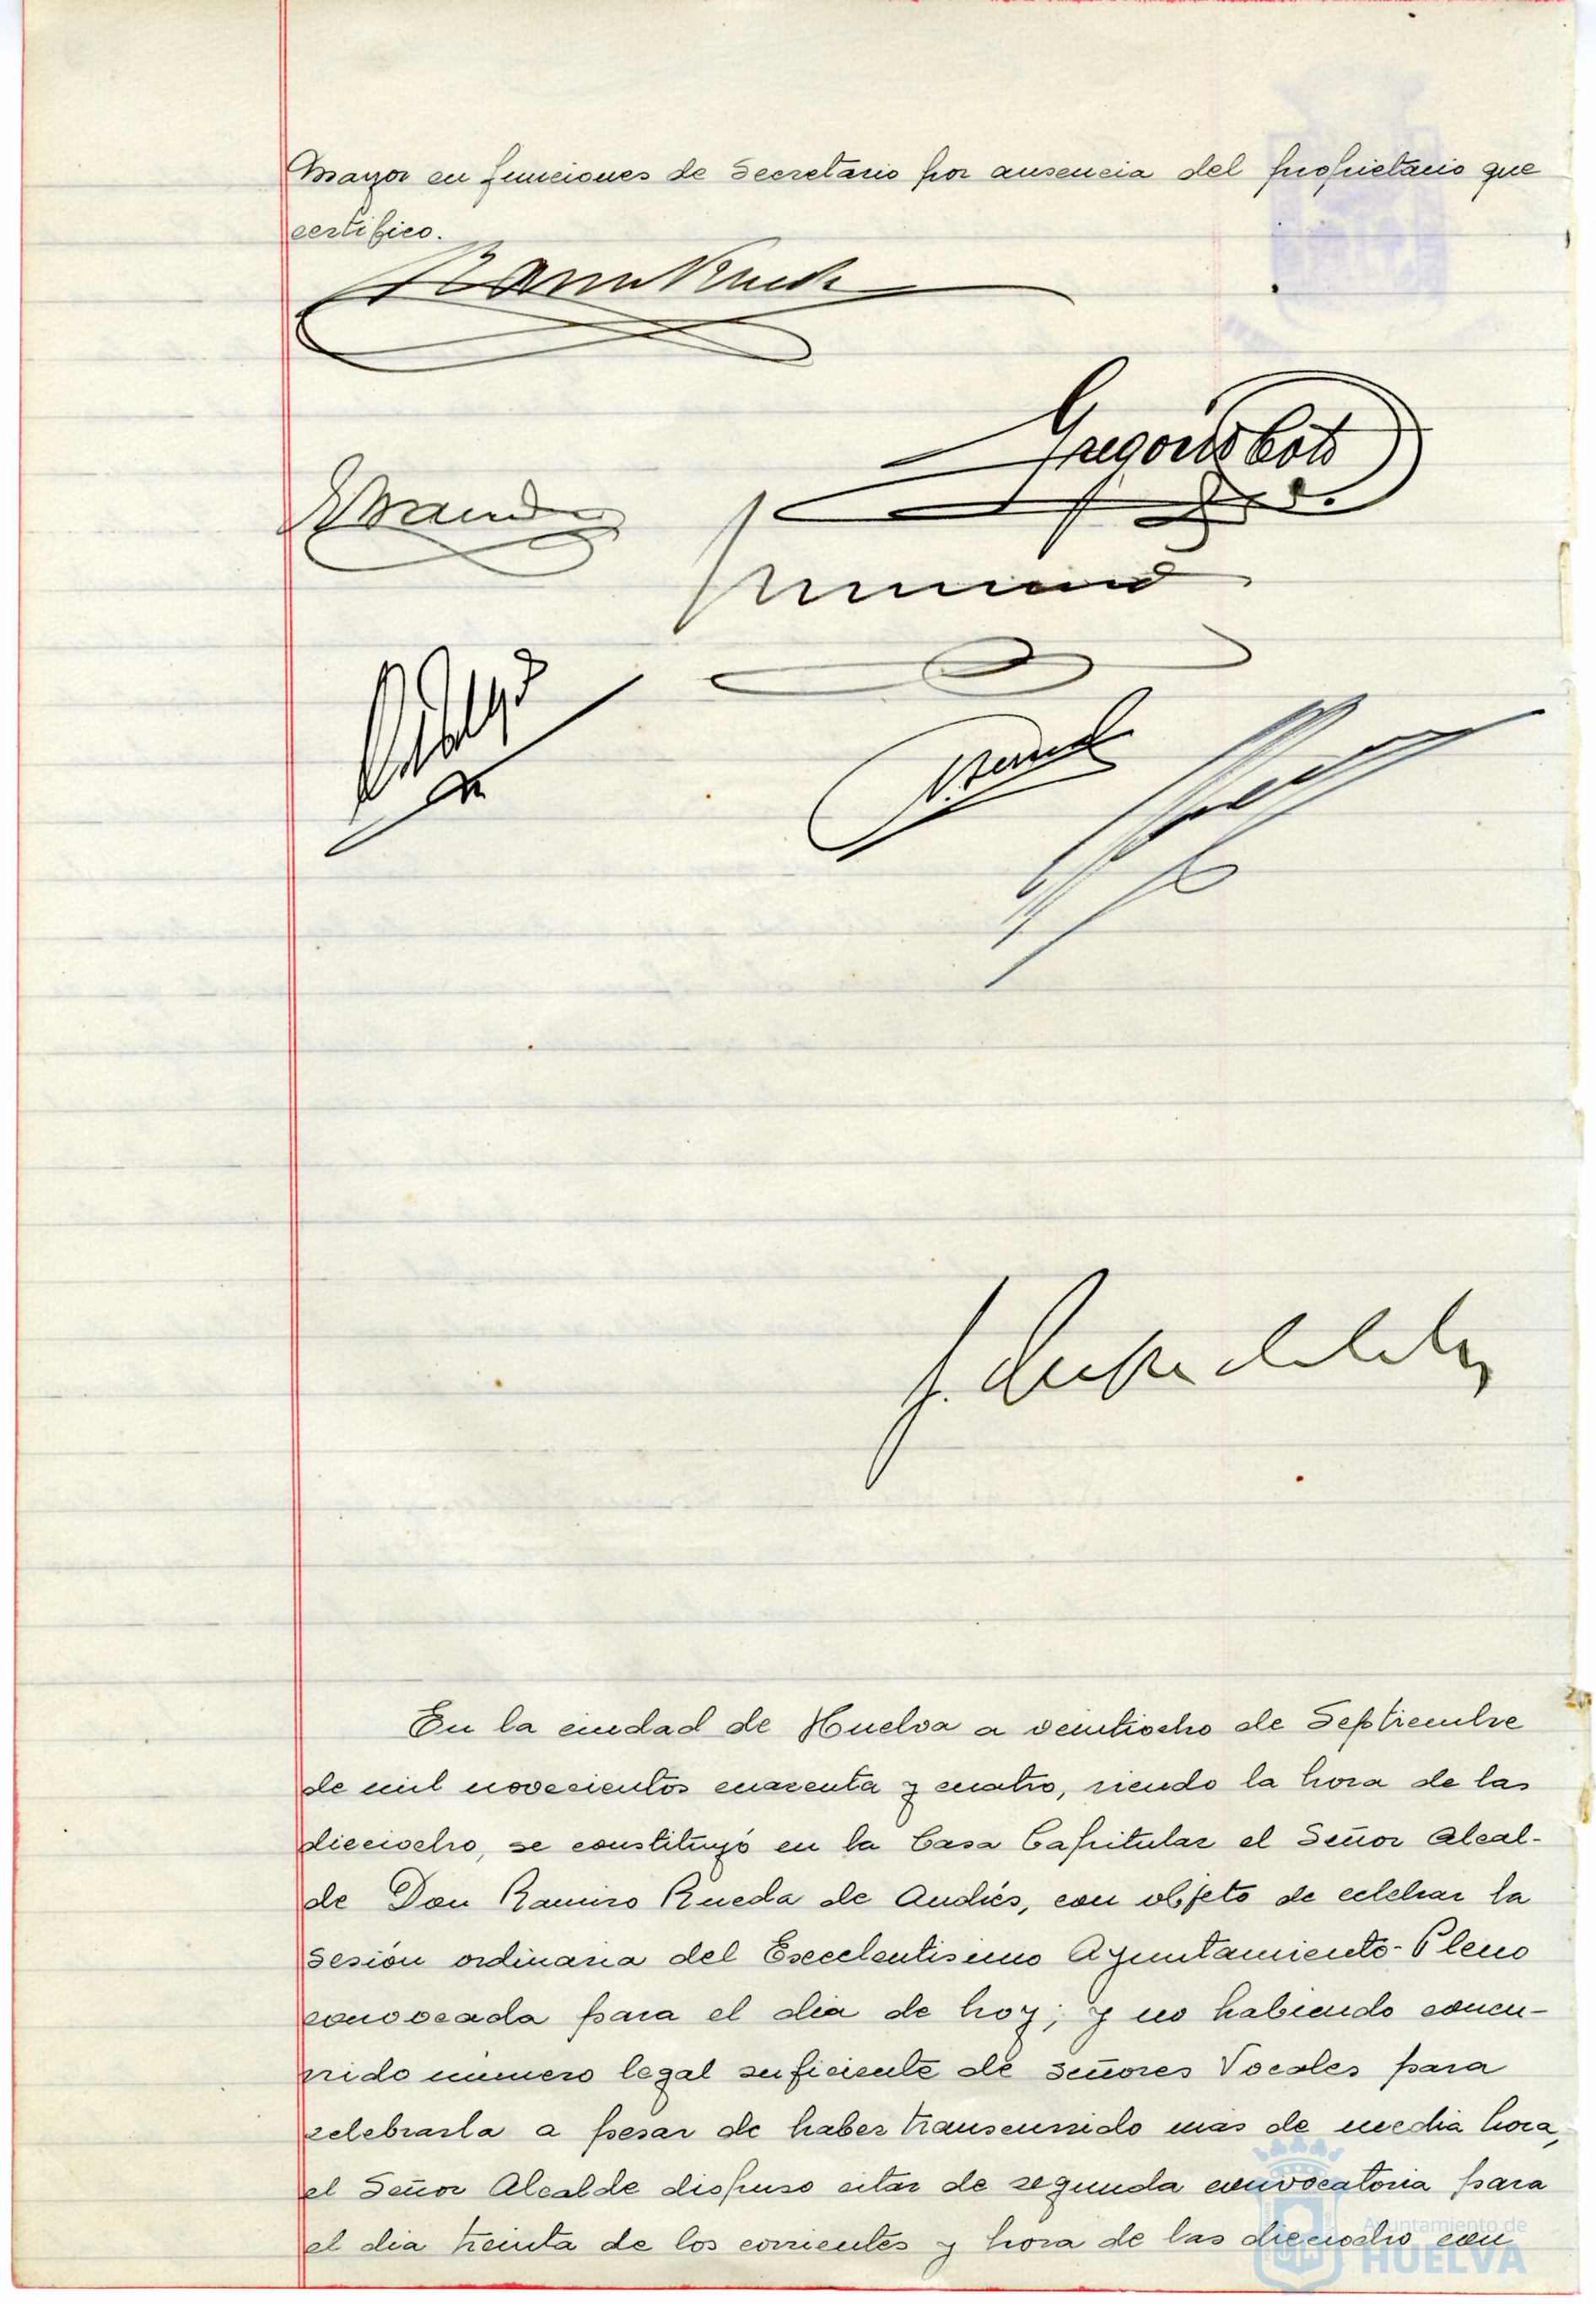 Mayor en funciones de Secretario por ausencia del propietario que
certifico.
Gregorio Coto
En la ciudad de Huelva a veintiocho de Septiembre
de mil novecientos cuarenta y cuatro, siendo la hora de las
dieciocho, se constituyó en la Casa Capitular el Señor Alcal-
de Don Ramiro Rueda de Andrés, con objeto de celebrar la
sesión ordinaria del Excelentisimo Ayuntamiento-Pleno
convocada para el dia de hoy; y no habiendo concu-
rrido número legal suficiente de señores Vocales para
celebrarla a pesar de haber transcurrido mas de media hora,
el Señor Alcalde dispuso citar de segunda convocatoria para
el dia treinta de los corrientes y hora de las dieciocho con
Ayuntamiento de
HUELVA